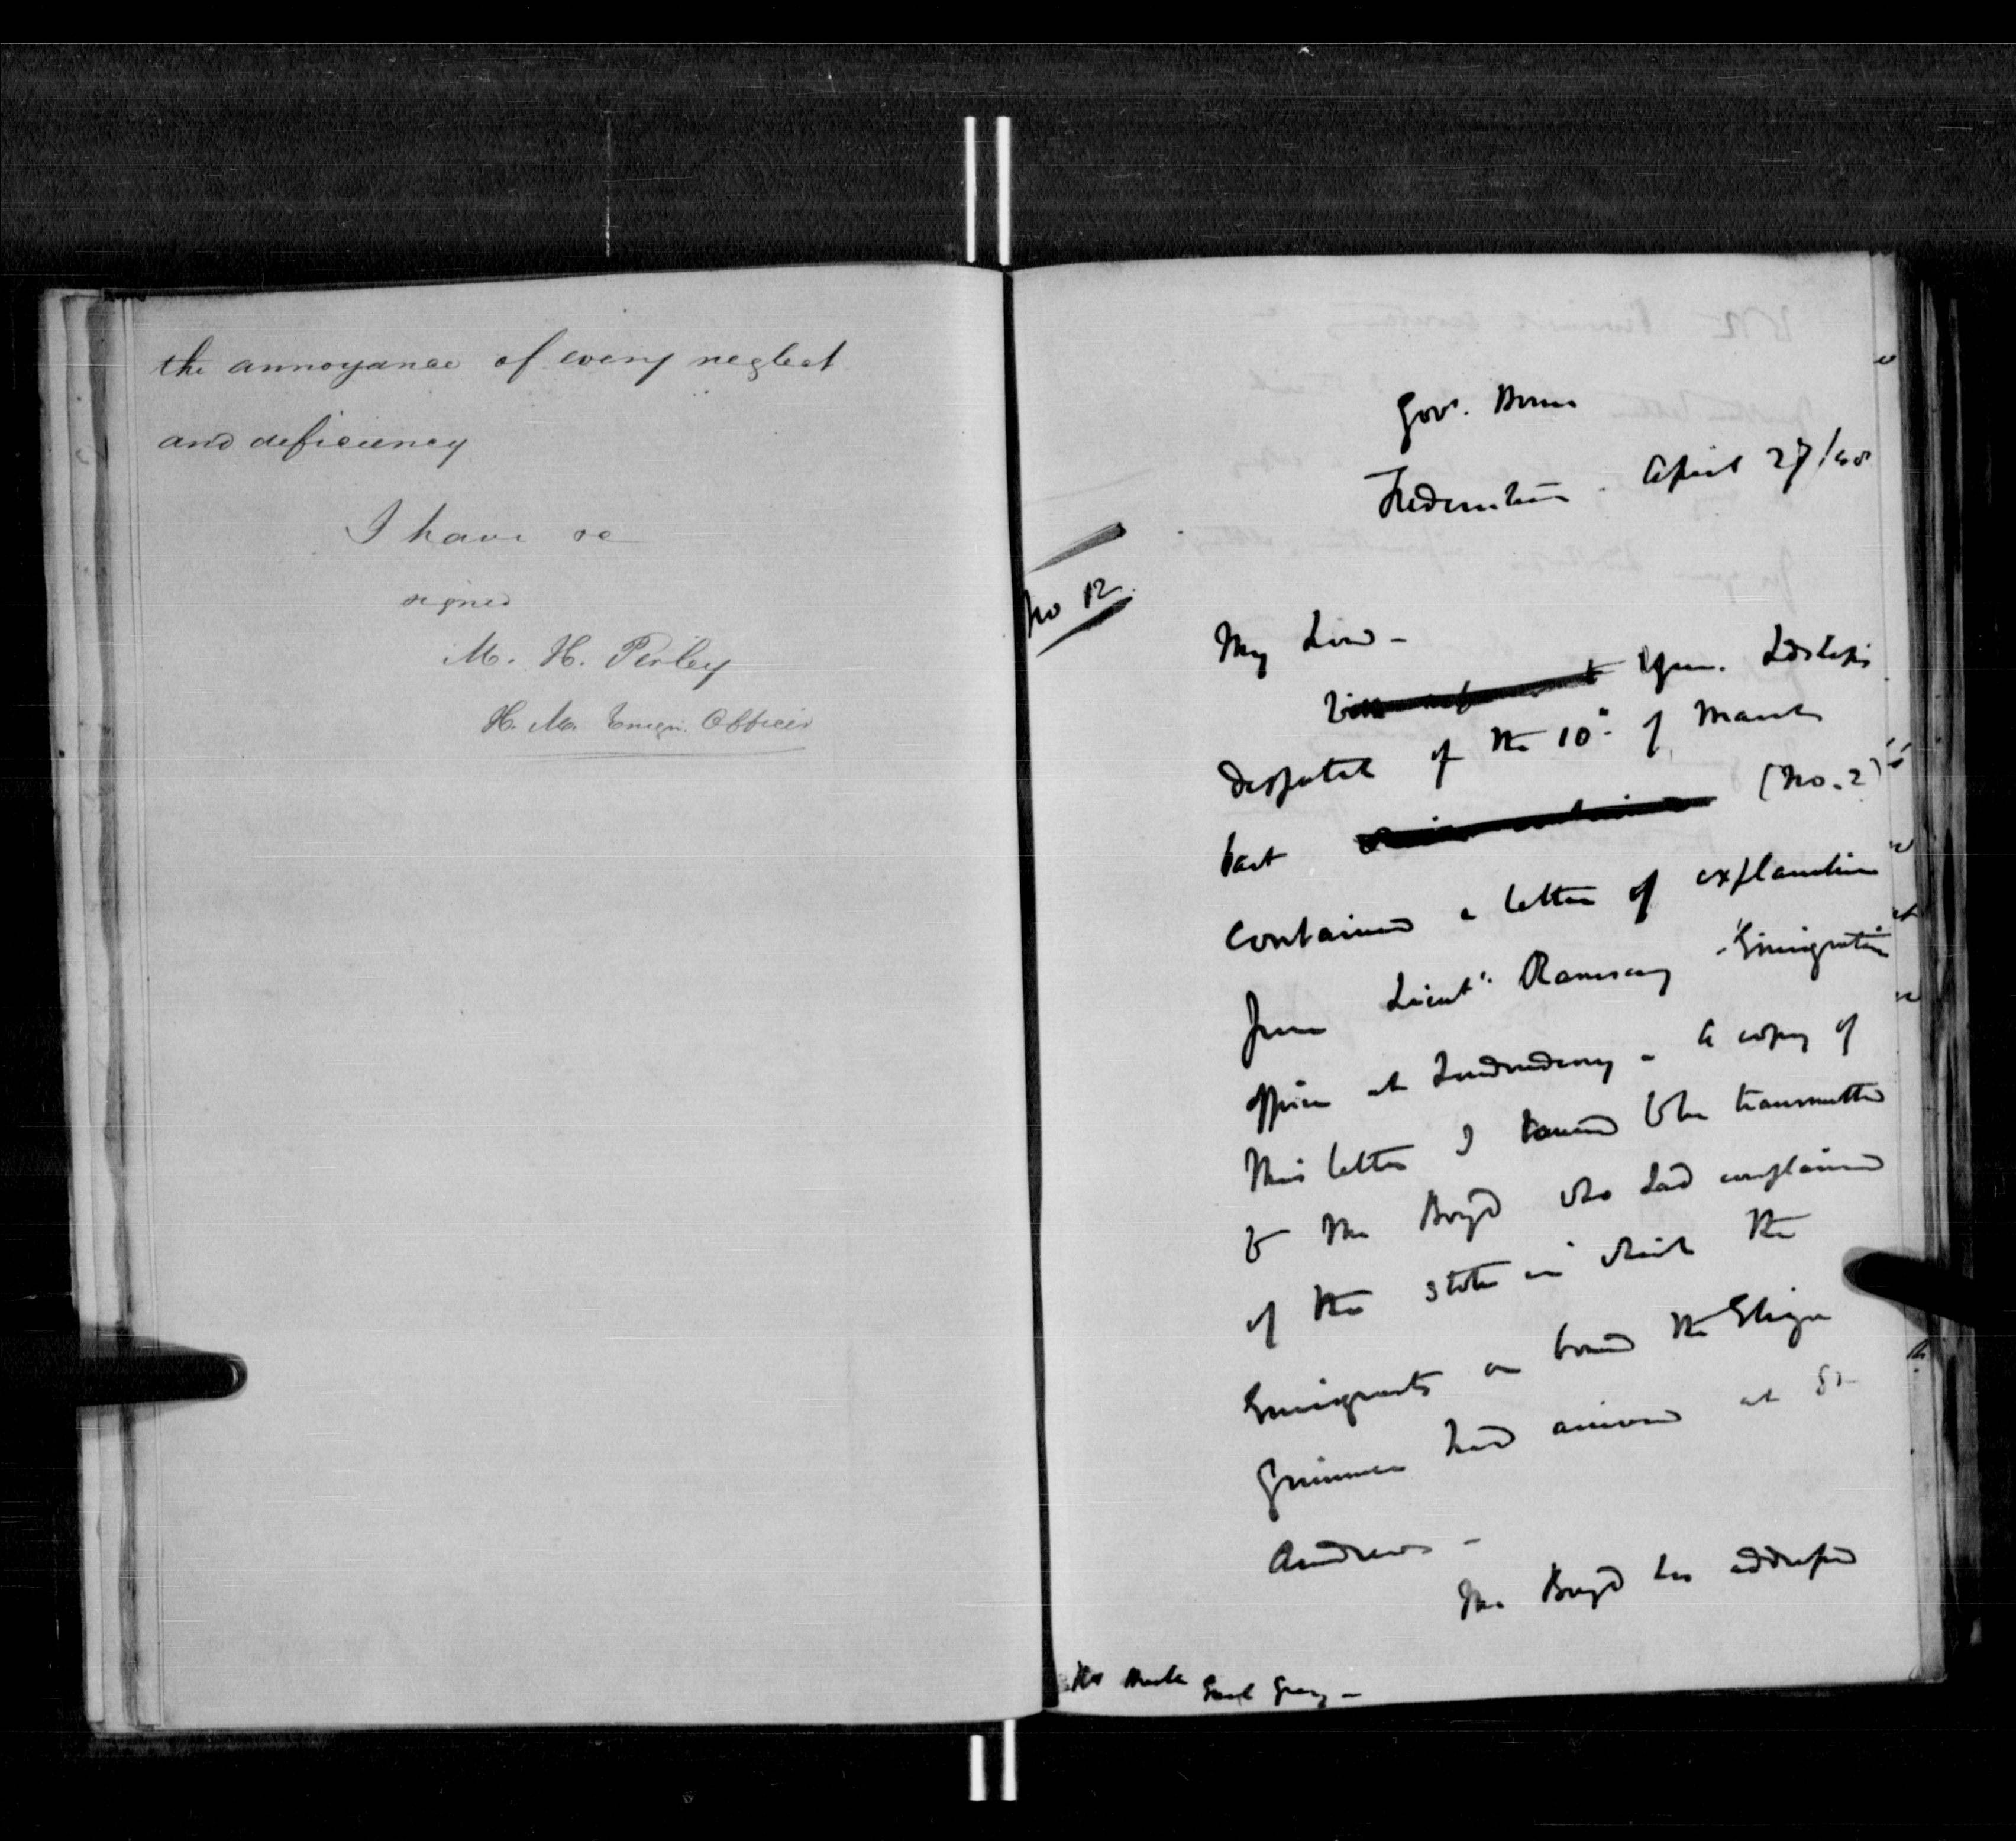 the annoyance of every neglect
and deficiency
I have &c
signed
M. H. Perley
H. M. Emign. Officer
Govt. House
Fredericton. April 27/48
No 12
My Lord -
Your Lordships
despatch of the 10th of March
last (No. 2)
contained a letter of explanation
from Lieut. Ramsay - Emigration
officer at Londonderry - a copy of
this letter I caused to be transmitted
to Mr Boyd who had complained
of the state in which the
Emigrants on board the Eliza
had arrived at St
Andrews -
Mr Boyd has addressed
Earl Grey -